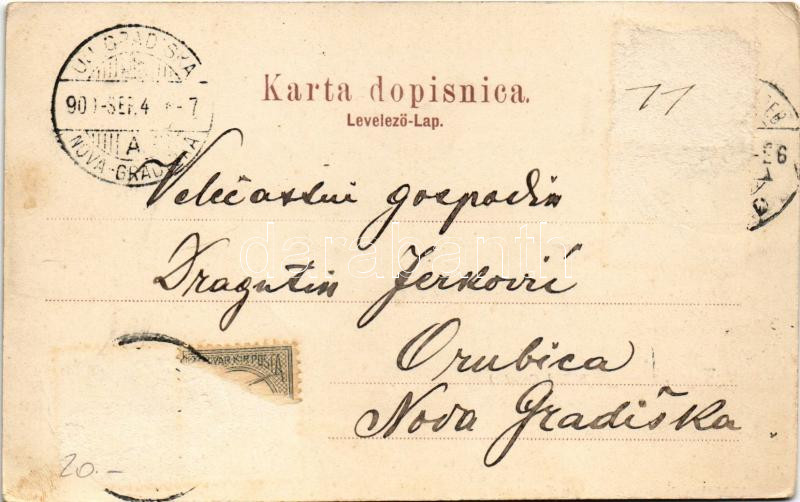 UJ GRADISKA
901 SEP. 4 -7
A
NOVA-GRADISKA
Karta dopisnica.
Levelező-Lap.
11
-S6
Velečastni gospodin
Dragutin Jerković
Orubica
Nova Gradiška
MAGYAR KIR. POSTA
20.-
darabanth